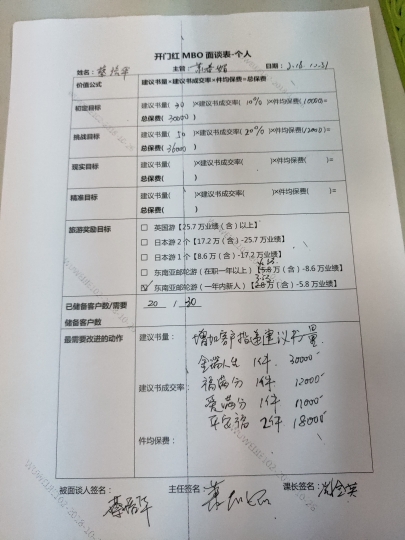 开门红 MBO 面谈表-个人
姓名: 主管: 日期: 2.16.12.31
价值公式 建议书量×建议书成交率×件均保费=总保费
初定目标 建议书量( 30 )×建议书成交率( 10% )×件均保费( 10000 )=
总保费( 30000 )
挑战目标 建议书量( 50 )×建议书成交率( 20% )×件均保费( 12000 )=
总保费( 36000 )
现实目标 建议书量( )×建议书成交率( )×件均保费( )=
总保费( )
精准目标 建议书量( )×建议书成交率( )×件均保费( )=
总保费( )
旅游奖励目标 □ 英国游【25.7万业绩(含)以上】
□ 日本游 2 个【17.2 万(含)-25.7万业绩】
□ 日本游 1 个【8.6 万(含)-17.2万业绩】
□ 东南亚邮轮游(在职一年以上)【5.8 万(含)-8.6万业绩】
☑ 东南亚邮轮游(一年内新人)【2.8 万(含)-5.8万业绩】
已储备客户数/需要储备客户数 20 / 30
最需要改进的动作 建议书量: 增加客户指递建议书量
金瑞人生 1件 30000
建议书成交率: 福满分 1件 12000
爱满分 1件 11000
平安福 2件 18000
件均保费:
被面谈人签名: 主任签名: 课长签名: